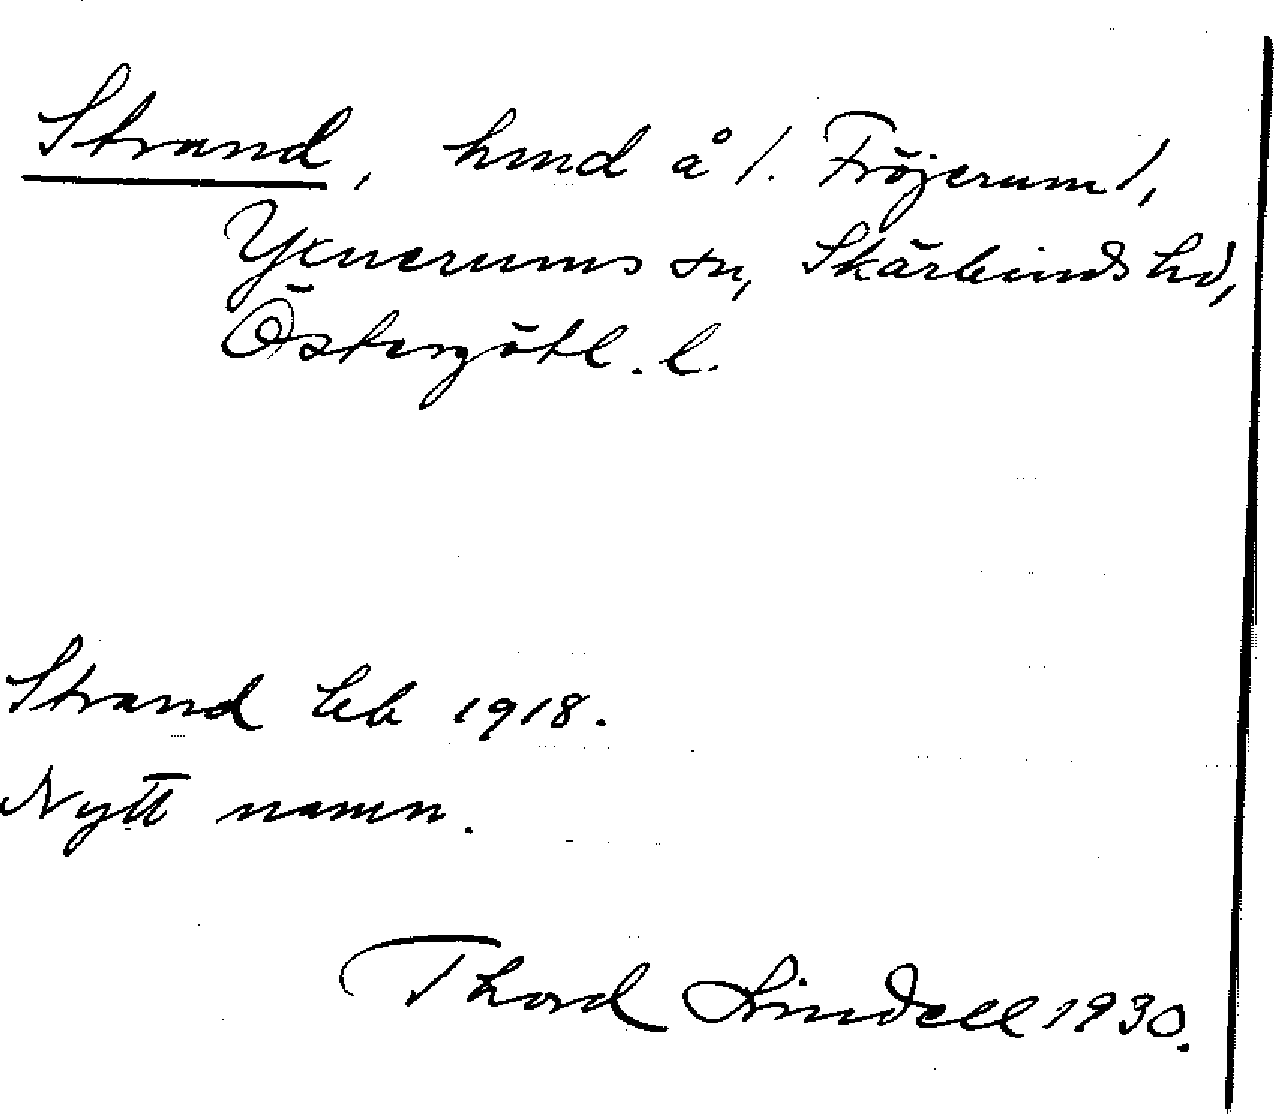 Strand, lund å /. Fröjerum /,
Yxnerums sn, Skärkinds hd,
Östergötl. l.
Strand leb 1918.
Nytt namn.
Thord Lindell 1930.